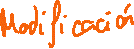 Modificación